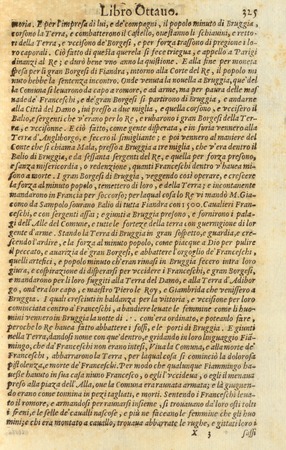 Libro Ottauo. 325
moria. E per l'impresa di lui, e de' compagni, il popolo minuto di Bruggia,
corsono la Terra, e combatterono il Castello, oue stauan li schiauini, e rett
ri della Terra, e uccisono de' Borgesi, e per forza trassono di pregione i lo-
ro caporali. Ciò fatto di questa querela si fece triegua, e appello a Parigi
dinanzi al Re; e durò bene uno anno la quistione. E alla fine per moneta
spesa per li gran Borgesi di Fiandra, intorno alla Corte del Re, il popolo mi
nuto hebbe la sentenza incontro. Onde venuta la nouella a Bruggia, que' del
la Comuna si leuarono da capo a romore, e ad arme, ma per paura delle mas
nade de' Franceschi, e de' gran Borgesi si partirono di Bruggia, e andarne
alla Città del Damo, iui presso a due miglia, e quella corsono, e uccisero il
Balio, e sergenti che v'erano per lo Re, e rubarono i gran Borgesi della Ter-
ra, e uccisonne. E ciò fatto, come gente disperata, e in furia vennero alla
Terra d' e feciono il simigliante; e poi vennero al maniere del
Conte che si chiama Mala, presso a Bruggia a tre miglia, che v'era dentro il
Balio di Bruggia, e da sessanta sergenti del Re, e quella per forza presono,
e sanza misericordia, o redenzione, quanti Franceschi dentro v'hauea mi-
sono a morte. I gran Borgesi di Bruggia, veggendo così operare, e crescere
la forza al minuto popolo, temettero di loro, e della Terra; e incontanente
mandarono in Francia per soccorso; per laqual cosa lo Re vi mandò M. Gia-
como da Sampolo sourano Balio di tutta Fiandra con 1500. Caualieri Fran-
ceschi, e con sergenti assai; e giunti a Bruggia presono, e fornirono i pala-
gi dell'Alle del Comune, e tutte le fortezze della terra con guernigione di lor
gente d'arme. Stando la Terra di Bruggia in gran sospetto, e guardia, e cre-
scendo l'ardire, e la forza al minuto popolo, come piacque a Dio per pulire
il peccato, e auarizia de' gran Borgesi, e abbattere l'orgoglio de' Franceschi,
quelli artefici, e popolo minuto ch'eran rimasi in Bruggia fecero intra loro
giura, e cospirazione di disperarsi per uccidere i Franceschi, e gran Borgesi,
e mandarono per li loro fuggiti alla Terra del Damo, e alla Terra d'
go, ond'era lor capo, e maestro Piero le Roy, e Giambrida che venissero a
Bruggia. I quali cresciuti in baldanza per la vittoria, e uccisione per loro
cominciata contro a' Franceschi, a bandiere leuate le femmine come li huo-
mini vennero in Bruggia la notte di com'era ordinato, e potéano fare,
peroche lo Re hauea fatto abbattere i fossi, e le porti di Bruggia. E giunti
nella Terra, dandosi nome con que' dentro, e gridando in loro linguaggio Fia-
mingo, che da' Franceschi non erano intesi, Viua la Comuna, e alla morte de'
Franceschi, abbarrarono la Terra, per laqual cosa si cominciò la dolorosa
pistolenza, e morte de' Franceschi. Per modo che qualunque Fiammingo ha-
uesse hauuto in sua casa niuno Francesco, o egli l'uccideua, o egli il menaua
preso alla piazza dell'Alla, oue la Comuna era raunata armata; e là giugnen-
do erano come tonnina in pezzi tagliati, e morti. Sentendo i Franceschi leua-
to il romore, e armandosi per raunarsi insieme, si trouauano da' loro osti tolti
i freni, e le selle de' caualli nascose, e più ne faceano le femmine che gli huo
mini; e chi era montato a cauallo, trouaua abbarrate le rughe, e gittati loro i
X 3 sassi